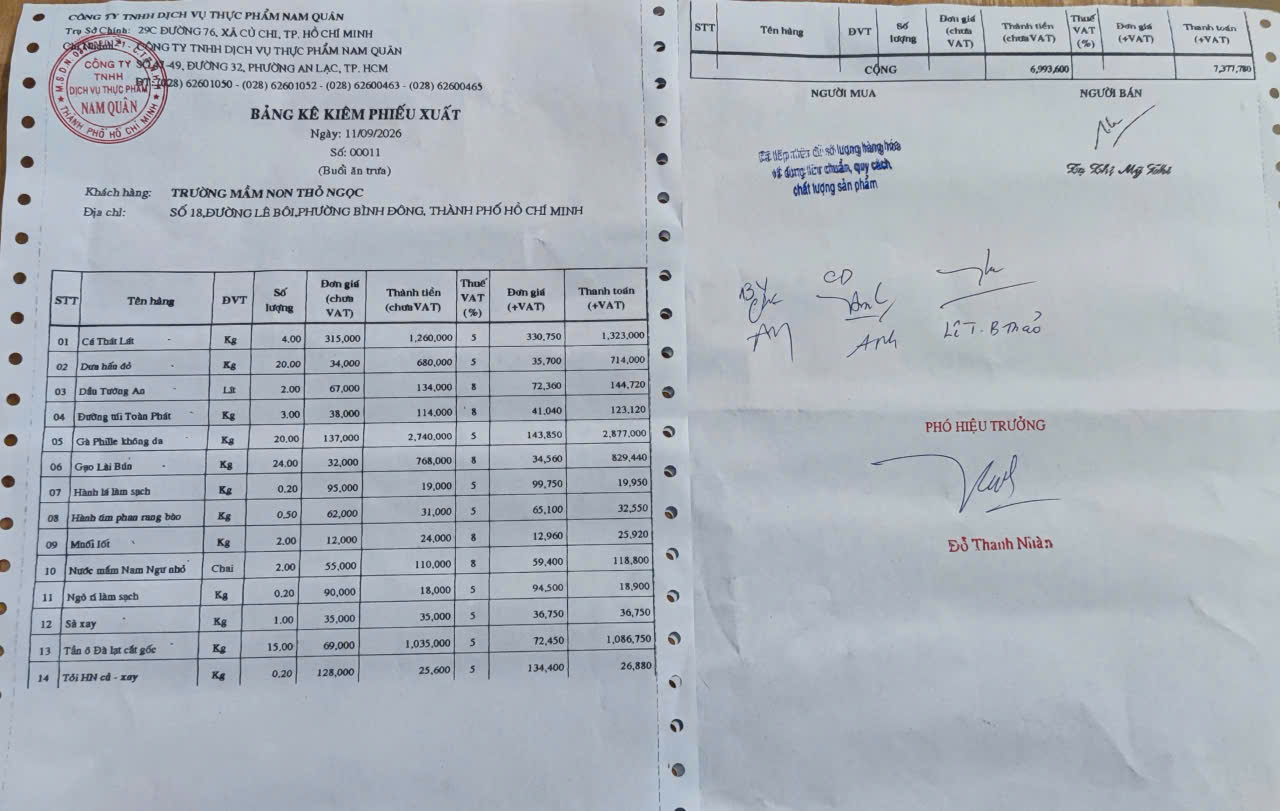 CÔNG TY TNHH DỊCH VỤ THỰC PHẨM NAM QUÂN
Trụ Sở Chính: 29C ĐƯỜNG 76, XÃ CỦ CHI, TP. HỒ CHÍ MINH
CÔNG TY TNHH DỊCH VỤ THỰC PHẨM NAM QUÂN
-49, ĐƯỜNG 32, PHƯỜNG AN LẠC, TP. HCM
(028) 62601050 - (028) 62601052 - (028) 62600463 - (028) 62600465
CÔNG TY
TNHH
DỊCH VỤ THỰC PHẨM
NAM QUÂN
THÀNH PHỐ HỒ CHÍ MINH
BẢNG KÊ KIÊM PHIẾU XUẤT
Ngày: 11/09/2026
Số: 00011
(Buổi ăn trưa)
Khách hàng: TRƯỜNG MẦM NON THỎ NGỌC
Địa chỉ: SỐ 18,ĐƯỜNG LÊ BÔI,PHƯỜNG BÌNH ĐÔNG, THÀNH PHỐ HỒ CHÍ MINH
STT Tên hàng ĐVT Số lượng Đơn giá (chưa VAT) Thành tiền (chưa VAT) Thuế VAT (%) Đơn giá (+VAT) Thanh toán (+VAT)
01 Cá Thát Lát Kg 4.00 315,000 1,260,000 5 330,750 1,323,000
02 Dưa hấu đỏ Kg 20.00 34,000 680,000 5 35,700 714,000
03 Dầu Tường An Lít 2.00 67,000 134,000 8 72,360 144,720
04 Đường túi Toàn Phát Kg 3.00 38,000 114,000 8 41,040 123,120
05 Gà Phille không da Kg 20.00 137,000 2,740,000 5 143,850 2,877,000
06 Gạo Lài Bún Kg 24.00 32,000 768,000 8 34,560 829,440
07 Hành lá làm sạch Kg 0.20 95,000 19,000 5 99,750 19,950
08 Hành tím phan rang bào Kg 0.50 62,000 31,000 5 65,100 32,550
09 Muối Iốt Kg 2.00 12,000 24,000 8 12,960 25,920
10 Nước mắm Nam Ngư nhỏ Chai 2.00 55,000 110,000 8 59,400 118,800
11 Ngò rí làm sạch Kg 0.20 90,000 18,000 5 94,500 18,900
12 Sả xay Kg 1.00 35,000 35,000 5 36,750 36,750
13 Tần ô Đà lạt cắt gốc Kg 15.00 69,000 1,035,000 5 72,450 1,086,750
14 Tỏi HN củ - xay Kg 0.20 128,000 25,600 5 134,400 26,880
STT Tên hàng ĐVT Số lượng Đơn giá (chưa VAT) Thành tiền (chưa VAT) Thuế VAT (%) Đơn giá (+VAT) Thanh toán (+VAT)
CỘNG 6,993,600 7,377,780
NGƯỜI MUA NGƯỜI BÁN
Đã tiếp nhận đủ số lượng hàng hóa
và đúng tiêu chuẩn, quy cách
chất lượng sản phẩm
CD
Anh
Lê T. B Thảo
PHÓ HIỆU TRƯỞNG
Đỗ Thanh Nhàn